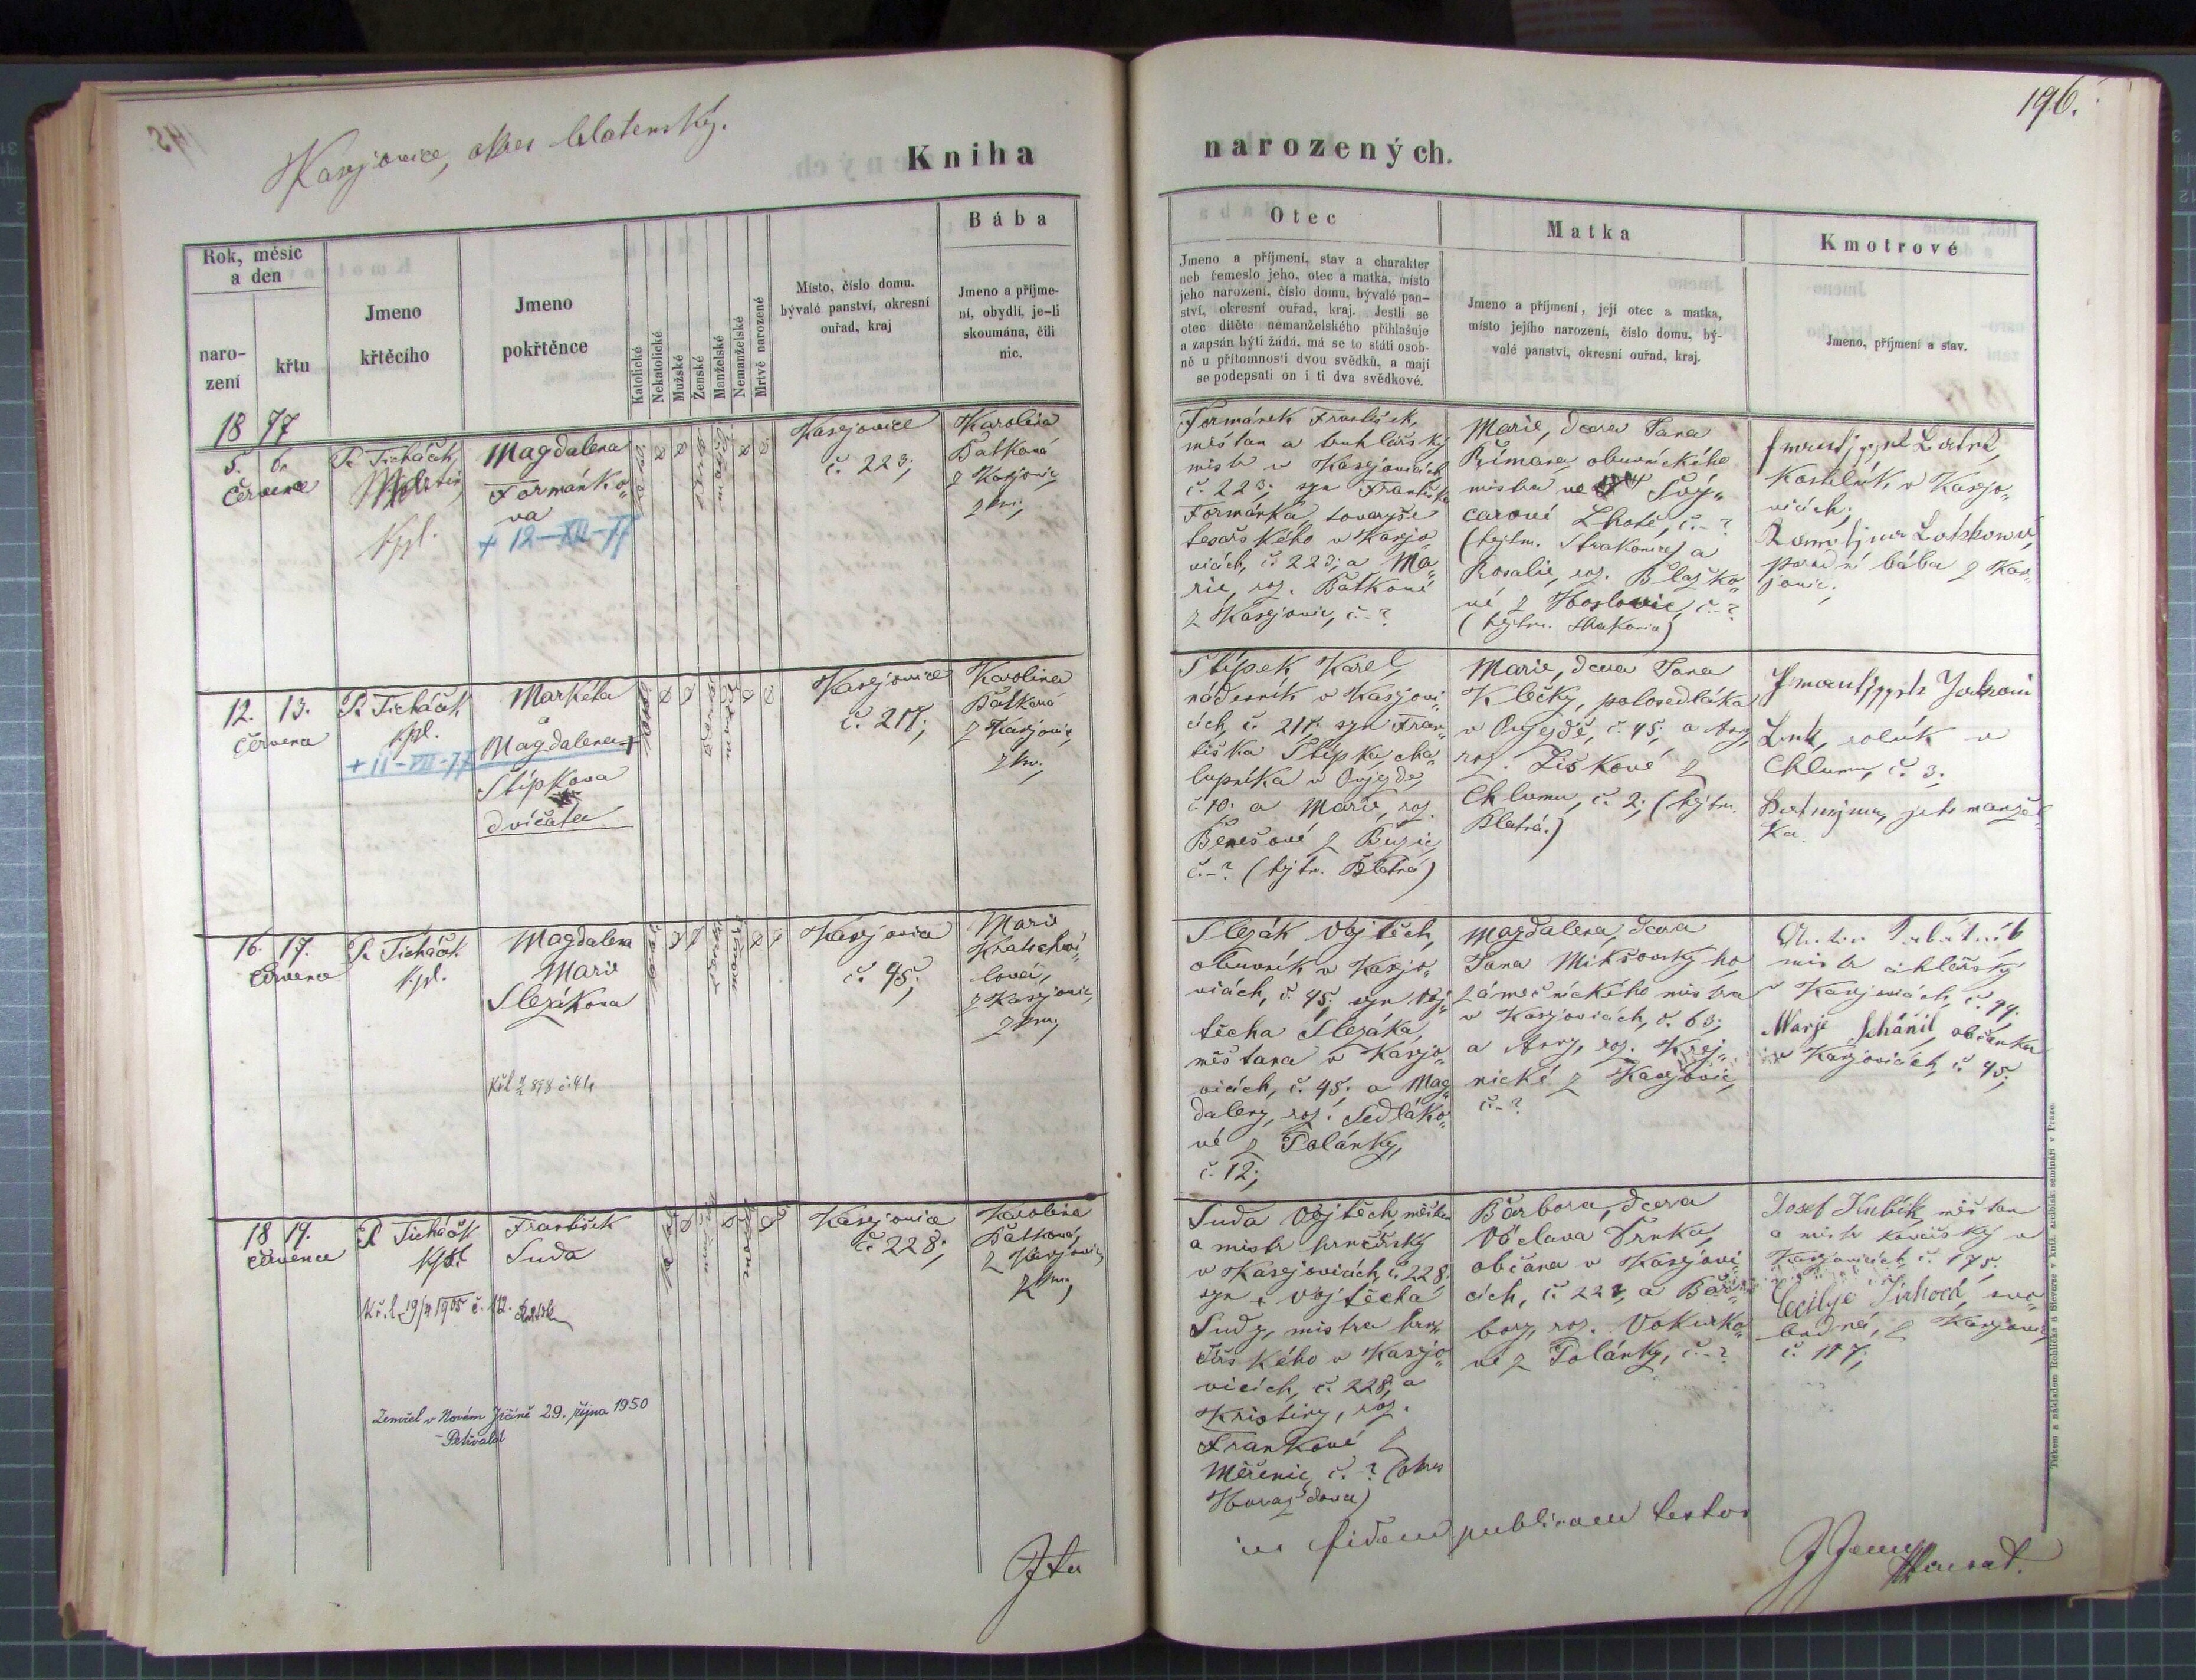 Kasejovice, okres blatenský.
196.
Kniha
narozených.
Rok, měsíc
a den
naro-
zení
křtu
Jmeno
křtěcího
Jmeno
pokřtěnce
Katolické
Nekatolické
Mužské
Ženské
Manželské
Nemanželské
Mrtvě narozené
Místo, číslo domu.
bývalé panství, okresní
ouřad, kraj
Bába
Jmeno a příjme-
ní, obydlí, je-li
skoumána, čili
nic.
Otec
Jmeno a příjmení, stav a charakter
neb řemeslo jeho, otec a matka, místo
jeho narození, číslo domu, bývalé pan-
ství, okresní ouřad, kraj. Jestli se
otec dítěte nemanželského přihlašuje
a zapsán býti žádá, má se to státi osob-
ně u přítomnosti dvou svědků, a mají
se podepsati on i ti dva svědkové.
Matka
Jmeno a příjmení, její otec a matka,
místo jejího narození, číslo domu, bý-
valé panství, okresní ouřad, kraj.
Kmotrové
Jmeno, příjmení a stav.
18 77
5. 6.
července
P. Ticháček
kpl.
Magdalena
Formánko„
va
+ 12-XII-77
Kasejovice
č. 223;
Karolina
Batková
z Kasejovic
zk.;
Formánek František,
měštan a truhlářský
mistr v Kasejovicích
č. 223; syn Františka
Formánka, tovaryše
tesařského v Kasejo
vicích, č. 223; a Ma„
rie, roz. Batkové
z Kasejovic, č.-?
Marie, dcera Jana
Římana, obuvnického
mistra ve Švý„
carové Lhotě, č.-?
(hejtm. Strakonice) a
Rosalie, roz. Blažko„
vé z Hoslovic, č.-?
(hejtm. Strakonice)
kostelník v Kasejo„
vicích;
porodní bába z Kase„
jovic;
12. 13.
července
P. Ticháček
kpl.
+ 11-VIII-77
Markéta
a
Magdalena +
Štípkova
dvíčata
Kasejovice
č. 217;
Karolina
Batková
z Kasejovic,
zk.;
Štípek Karel,
nádeník v Kasejovi„
cích, č. 217; syn Fran„
tiška Štípka, cha„
lupníka v Oujezdě,
č. 10; a Marie, roz.
Benešové z Buzic,
č.-? (hejtm. Blatná)
Marie, dcera Jana
Klečky, polosedláka
v Oujezdě, č. 45; a Anny,
roz. Ziskové z
Chlumu, č. 2; (hejtm.
Blatná.)
rolník v
Chlumu, č. 3;
jeho manžel„
ka.
16. 17.
července
P. Ticháček
kpl.
Magdalena
Marie
Slezákova
Kasejovice
č. 45;
Marie
z Kasejovic,
zk.;
Slezák Vojtěch,
obuvník v Kasejo„
vicích, č. 45; syn Voj„
těcha Slezáka,
měštana v Kasejo„
vicích, č. 45; a Mag„
daleny, roz. Sedláko„
vé z Polánky,
č. 12;
Magdalena, dcera
Jana Mikšovského,
zámečnického mistra
v Kasejovicích, č. 63;
a Anny, roz. Krej„
nické z Kasejovic,
č.-?
mistr cihlářský
v Kasejovicích, č. 99.
Marie Schánil, občanka
v Kasejovicích, č. 45;
18 19.
července
P. Ticháček
kpl.
František
Suda
Zemřel v Novém Jičíně 29. října 1950
Kasejovice
č. 228;
Karolina
Batková,
z Kasejovic,
zk.;
Suda Vojtěch, měštan
a mistr hrnčířský
v Kasejovicích, č. 228.
syn + Vojtěcha
Sudy, mistra hrn„
čířského v Kasejo„
vicích, č. 228; a
Kristiny, roz.
Frankové z
Měčenic, č.-? (okres
Horažďovice)
Barbora, dcera
Václava Drnka,
občana v Kasejovi„
cích, č. 227, a Bar„
bory, roz. Vokurko„
vé z Polánky, č.-?
Josef Kubík, měštan
a mistr kovářský v
Kasejovicích č. 175;
Cecilye Jirková, svo„
bodná, z Kasejovic,
č. 117;
Ita
in fidem publicam testor
Tiskem a nákladem Rohlíčka a Sieverse v kníž. arcibisk. semináři v Praze.